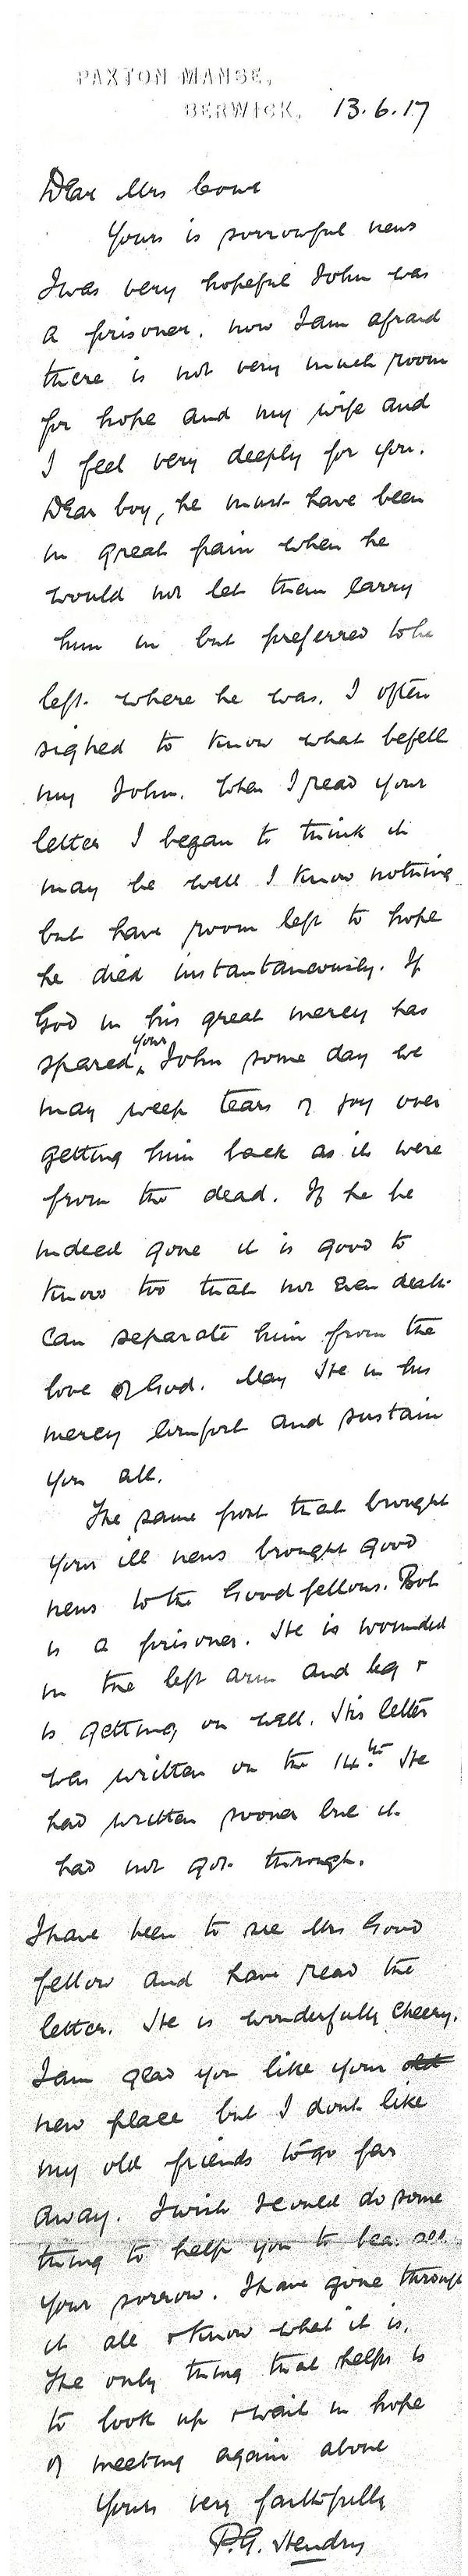 PAXTON MANSE,
BERWICK, 13.6.17
Dear Mrs Cowe
Yours is sorrowful news
I was very hopeful John was
a prisoner. now I am afraid
there is not very much room
for hope and my wife and
I feel very deeply for you.
Dear boy, he must have been
in great pain when he
would not let them carry
him in but preferred to be
left where he was. I often
sighed to know what befell
my John. When I read your
letter I began to think it
may be well I know nothing
but have room left to hope
he died instantaneously. If
God in his great mercy has
spared your John some day we
may weep tears of joy over
getting him back as it were
from the dead. If he be
indeed gone it is good to
know too that not even death
can separate him from the
love of God. May He in his
mercy comfort and sustain
you all.
The same post that brought
your ill news brought good
news to the Goodfellows. Bob
is a prisoner. He is wounded
in the left arm and leg +
is getting on well. His letter
was written on the 14th. He
had written sooner but it
had not got through.
I have been to see Mrs Good
fellow and have read the
letter. He is wonderfully cheery.
I am glad you like your old
new place but I dont like
my old friends to go far
away. I wish I could do some
thing to help you to bear
your sorrow. I have gone through
it all + know what it is.
The only thing that helps is
to look up + wait in hope
of meeting again above
Yours very faithfully
P.G. Hendry